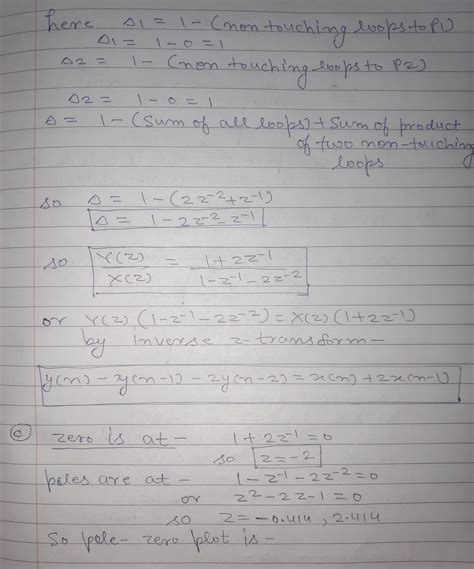 here Δ1 = 1 - (non touching loops to P1)
Δ1 = 1 - 0 = 1
Δ2 = 1 - (non touching loops to P2)
Δ2 = 1 - 0 = 1
Δ = 1 - (Sum of all loops) + Sum of product
of two non-touching
loops
so Δ = 1 - (2z⁻² + z⁻¹)
Δ = 1 - 2z⁻² - z⁻¹
so Y(z)/X(z) = (1 + 2z⁻¹)/(1 - z⁻¹ - 2z⁻²)
or Y(z) (1 - z⁻¹ - 2z⁻²) = X(z) (1 + 2z⁻¹)
by inverse z-transform -
y(n) - y(n-1) - 2y(n-2) = x(n) + 2x(n-1)
(c) zero is at - 1 + 2z⁻¹ = 0
so z = -2
poles are at - 1 - z⁻¹ - 2z⁻² = 0
or z² - 2z - 1 = 0
so z = -0.414, 2.414
So pole-zero plot is -